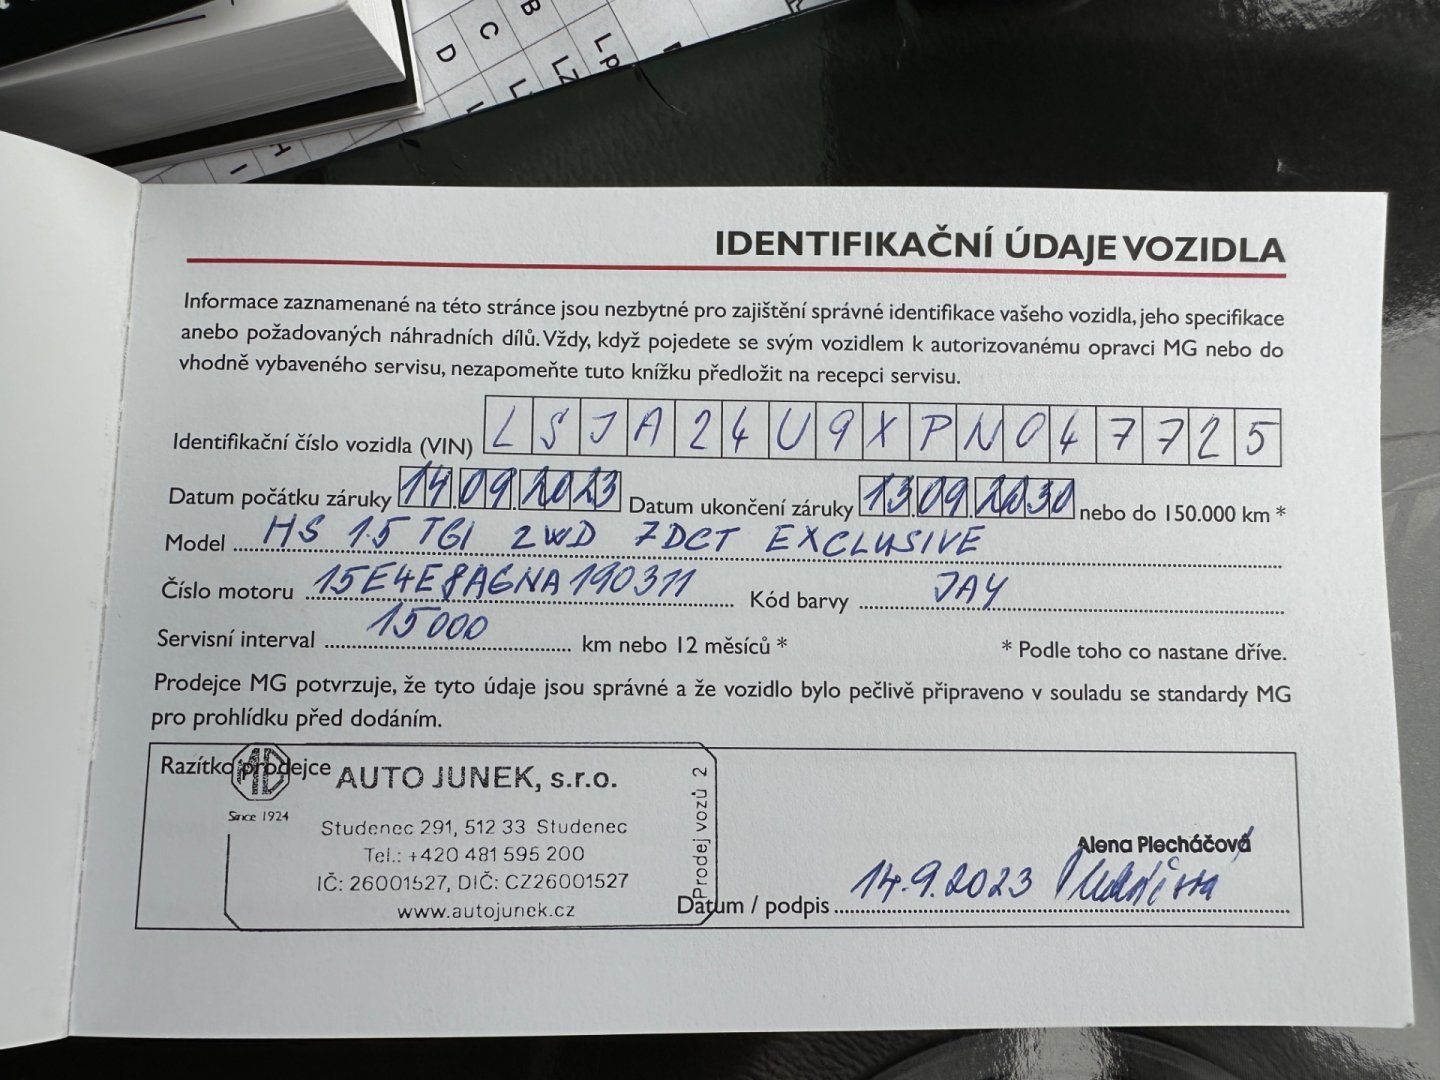 D C B
L Lz Lp
I H
IDENTIFIKAČNÍ ÚDAJE VOZIDLA
Informace zaznamenané na této stránce jsou nezbytné pro zajištění správné identifikace vašeho vozidla, jeho specifikace
anebo požadovaných náhradních dílů. Vždy, když pojedete se svým vozidlem k autorizovanému opravci MG nebo do
vhodně vybaveného servisu, nezapomeňte tuto knížku předložit na recepci servisu.
Identifikační číslo vozidla (VIN) LSJA24U9XPN047725
Datum počátku záruky 14.09.2023 Datum ukončení záruky 13.09.2030 nebo do 150.000 km *
Model HS 1.5 TGI 2WD 7DCT EXCLUSIVE
Číslo motoru 15E4E8AGNA190311 Kód barvy JAY
Servisní interval 15000 km nebo 12 měsíců * * Podle toho co nastane dříve.
Prodejce MG potvrzuje, že tyto údaje jsou správné a že vozidlo bylo pečlivě připraveno v souladu se standardy MG
pro prohlídku před dodáním.
Razítko prodejce
MG
Since 1924
AUTO JUNEK, s.r.o.
Studenec 291, 512 33 Studenec
Tel.: +420 481 595 200
IČ: 26001527, DIČ: CZ26001527
www.autojunek.cz
Prodej vozů 2
Alena Plecháčová
Datum / podpis 14.9.2023